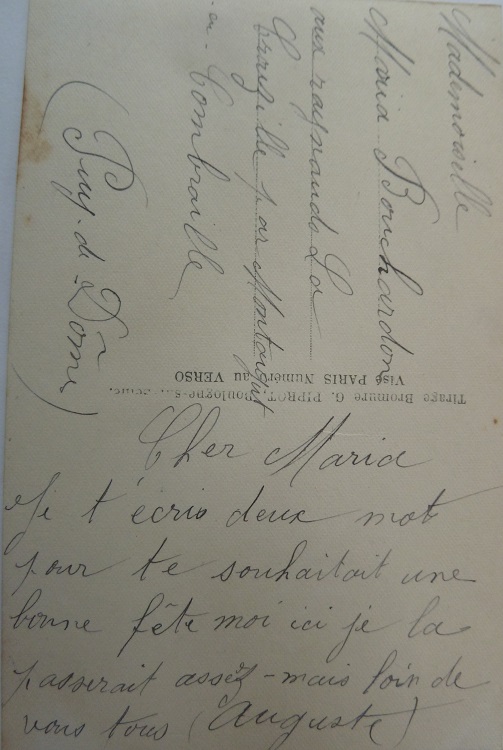 Mademoiselle
Maria Bouchardon
aux raynauds La
Crouzille par Montaigut
en Combraille
(Puy-de-Dôme)
Tirage Bromure G. PIPROT, Boulogne-s
Visé PARIS Numéro au VERSO
Cher Maria
Je t'écris deux mot
pour te souhaitait une
bonne fête moi ici je la
passerait assez - mais loin de
vous tous (Auguste)